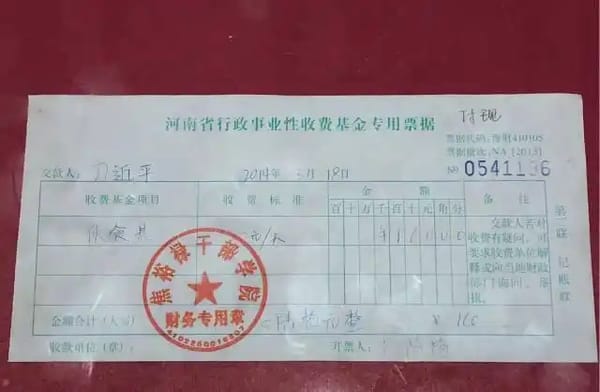 付现
河南省行政事业性收费基金专用票据
票据代码:豫财410105
票据批次:NA[2013]
№ 0541196
交款人: 习近平 2014年3月18日
收费基金项目 收费标准 金额 备注
百十万千百十元角分
伙食费 元/天 ¥ 1 6 0 0 0
交款人若对收费有疑问,可要求收费单位解释或向当地财政部门询问、举报。
第一联 记账联
焦裕禄干部学院
财务专用章
金额合计(大写) 壹佰陆拾元整 ¥160
收款单位(章): 开票人: